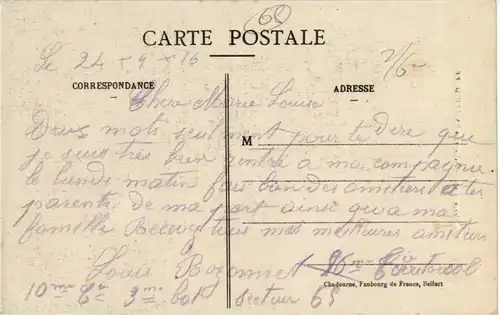 69
CARTE POSTALE
Le 24 x 9 x 16
2/6
CORRESPONDANCE
ADRESSE
Chere Marie Louise
M
Deux mots seulment pour te dire que
je suis tres bien rentre a ma compagnie
le lundi matin fais bien des amitiers a tes
parents de ma part ainsi qu'a ma
famille Recevez tous mes meilleures amitiers
Louis
10me Cie 3me bat Secteur 65
Chadourne, Faubourg de France, Belfort